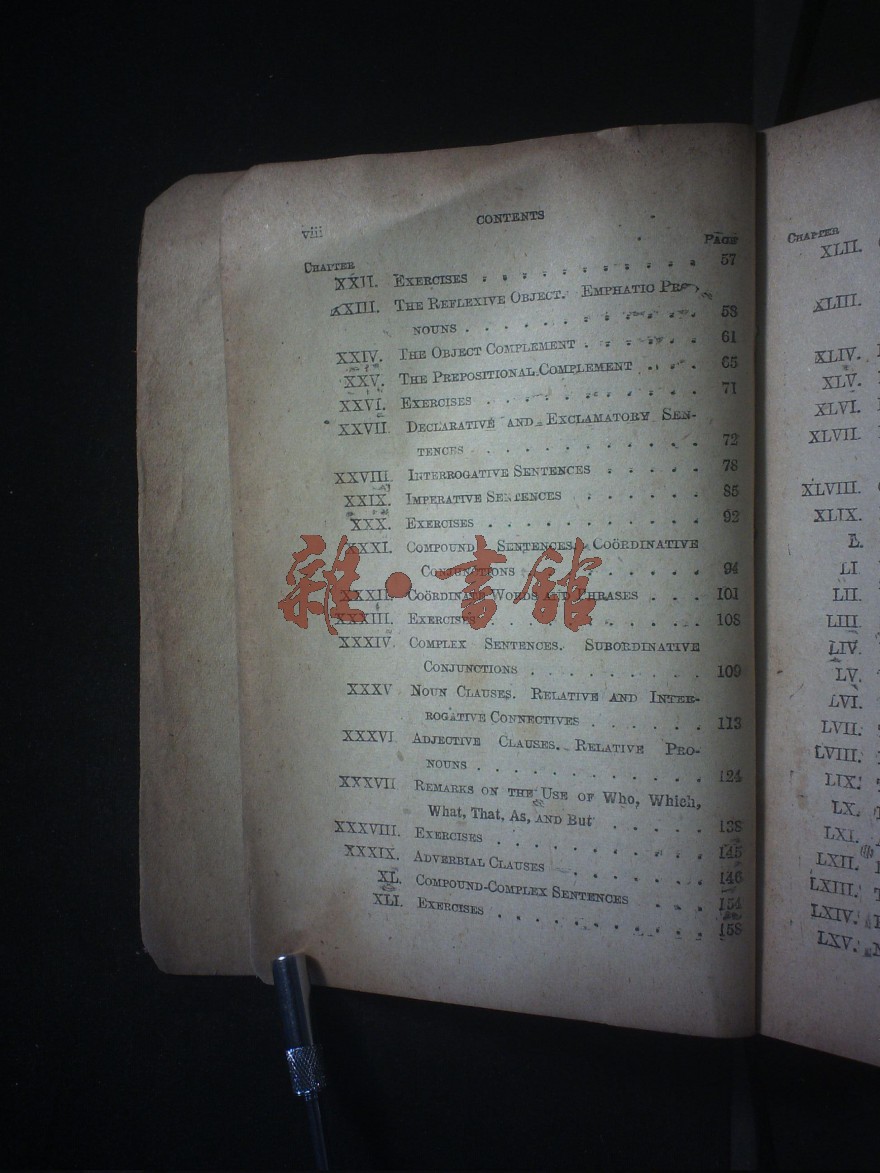 viii
CONTENTS
CHAPTER PAGE
XXII. EXERCISES . . . . . . . . . . . 57
XXIII. THE REFLEXIVE OBJECT. EMPHATIC PRO-
NOUNS . . . . . . . . . . . 58
XXIV. THE OBJECT COMPLEMENT . . . . . . 61
XXV. THE PREPOSITIONAL COMPLEMENT . . . . 65
XXVI. EXERCISES . . . . . . . . . . . 71
XXVII. DECLARATIVE AND EXCLAMATORY SEN-
TENCES . . . . . . . . . . . 72
XXVIII. INTERROGATIVE SENTENCES . . . . . 78
XXIX. IMPERATIVE SENTENCES . . . . . . 85
XXX. EXERCISES . . . . . . . . . . . 92
XXXI. COMPOUND SENTENCES. COÖRDINATIVE
CONJUNCTIONS . . . . . . . . . 94
XXXII. COÖRDINATE WORDS AND PHRASES . . . 101
XXXIII. EXERCISES . . . . . . . . . . . 108
XXXIV. COMPLEX SENTENCES. SUBORDINATIVE
CONJUNCTIONS . . . . . . . . . 109
XXXV NOUN CLAUSES. RELATIVE AND INTER-
ROGATIVE CONNECTIVES . . . . . . 113
XXXVI ADJECTIVE CLAUSES. RELATIVE PRO-
NOUNS . . . . . . . . . . . 124
XXXVII REMARKS ON THE USE OF Who, Which,
What, That, As, AND But . . . . . 138
XXXVIII. EXERCISES . . . . . . . . . . . 145
XXXIX. ADVERBIAL CLAUSES . . . . . . . 146
XL. COMPOUND-COMPLEX SENTENCES . . . 154
XLI. EXERCISES . . . . . . . . . . . 158
雜·書館
CHAPTER
XLII.
XLIII.
XLIV.
XLV.
XLVI.
XLVII.
XLVIII.
XLIX.
L.
LI
LII.
LIII
LIV.
LV.
LVI.
LVII.
LVIII.
LIX.
LX.
LXI.
LXII.
LXIII.
LXIV.
LXV.